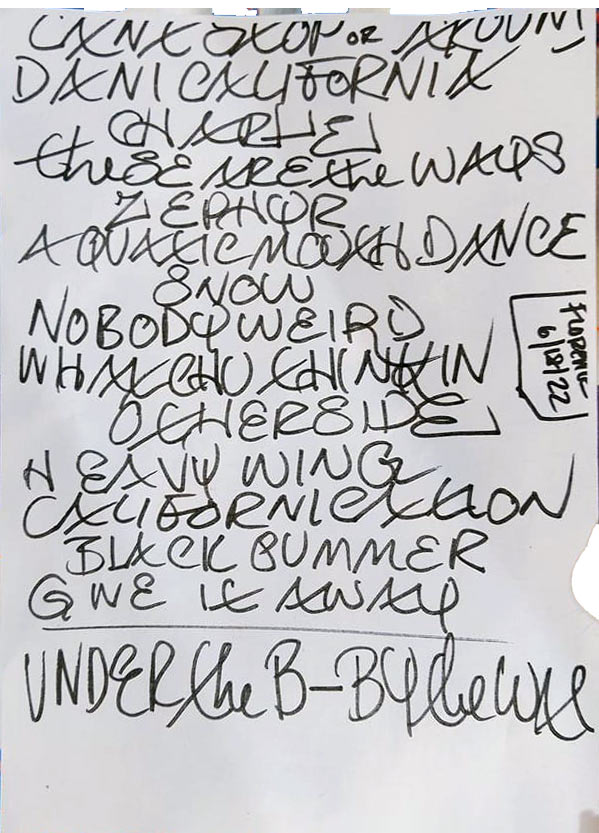 CAN'T STOP OR AROUND
DANI CALIFORNIA
CHARLIE
these ARE the WAYS
ZEPHYR
AQUATIC MOUTH DANCE
SNOW
NOBODY WEIRD
WHATCHU THINKIN
OTHERSIDE
HEAVY WING
CALIFORNICATION
BLACK SUMMER
GIVE IT AWAY
UNDER the B - BY the WAY
FLORENCE
6/18/22